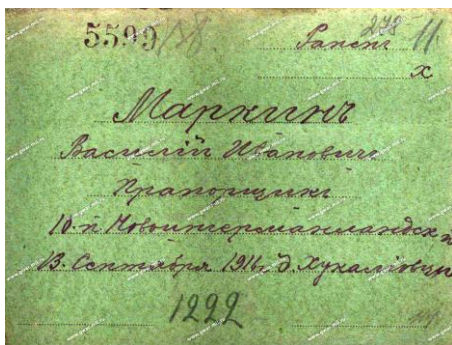 5599/38 278 11
Раненъ
х
Маркинъ
Василій Ивановичъ
Прапорщикъ
10-й Новоингерманландск п
13. Сентября 1916 д.
1222